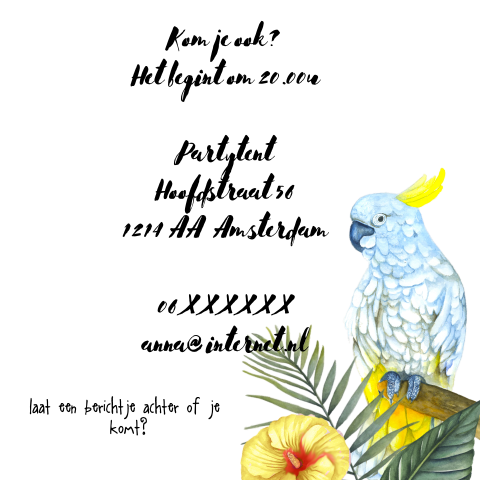 Kom je ook?
Het begint om 20.00u
Partytent
Hoofdstraat 56
1214 AA Amsterdam
06XXXXXX
anna@internet.nl
laat een berichtje achter of je
komt?